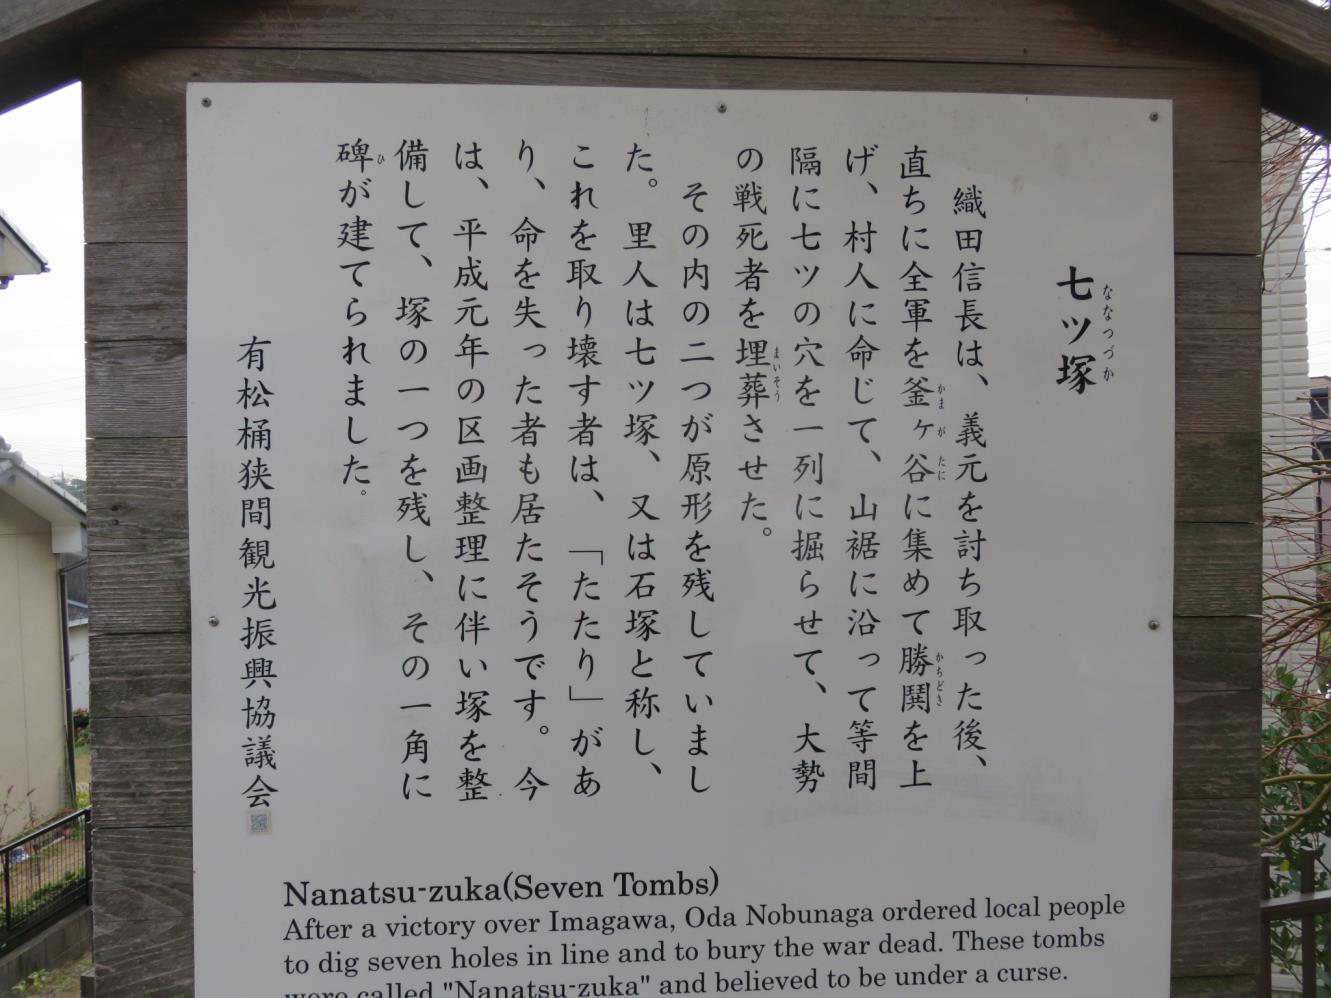 七ツ塚
ななつづか
織田信長は、義元を討ち取った後、
直ちに全軍を釜ヶ谷に集めて勝鬨を上
かまがたに
かちどき
げ、村人に命じて、山裾に沿って等間
隔に七ツの穴を一列に掘らせて、大勢
の戦死者を埋葬させた。
まいそう
その内の二つが原形を残していまし
た。里人は七ツ塚、又は石塚と称し、
これを取り壊す者は、「たたり」があ
り、命を失った者も居たそうです。今
は、平成元年の区画整理に伴い塚を整
備して、塚の一つを残し、その一角に
碑が建てられました。
ひ
有松桶狭間観光振興協議会
Nanatsu-zuka(Seven Tombs)
After a victory over Imagawa, Oda Nobunaga ordered local people
to dig seven holes in line and to bury the war dead. These tombs
were called "Nanatsu-zuka" and believed to be under a curse.